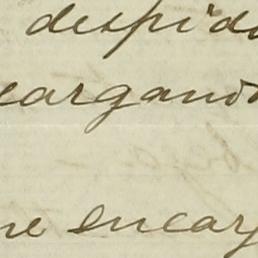 despido
cargando
me encarg